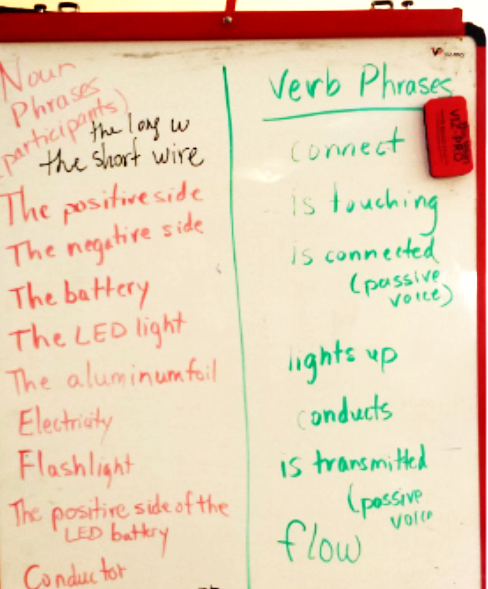 Noun
Phrases
(participants)
the long w
the short wire
The positive side
The negative side
The battery
The LED light
The aluminum foil
Electricity
Flashlight
The positive side of the
LED battery
Conductor
Verb Phrases
connect
is touching
is connected
(passive
voice)
lights up
conducts
is transmitted
(passive
voice
flow
VIZ-PRO